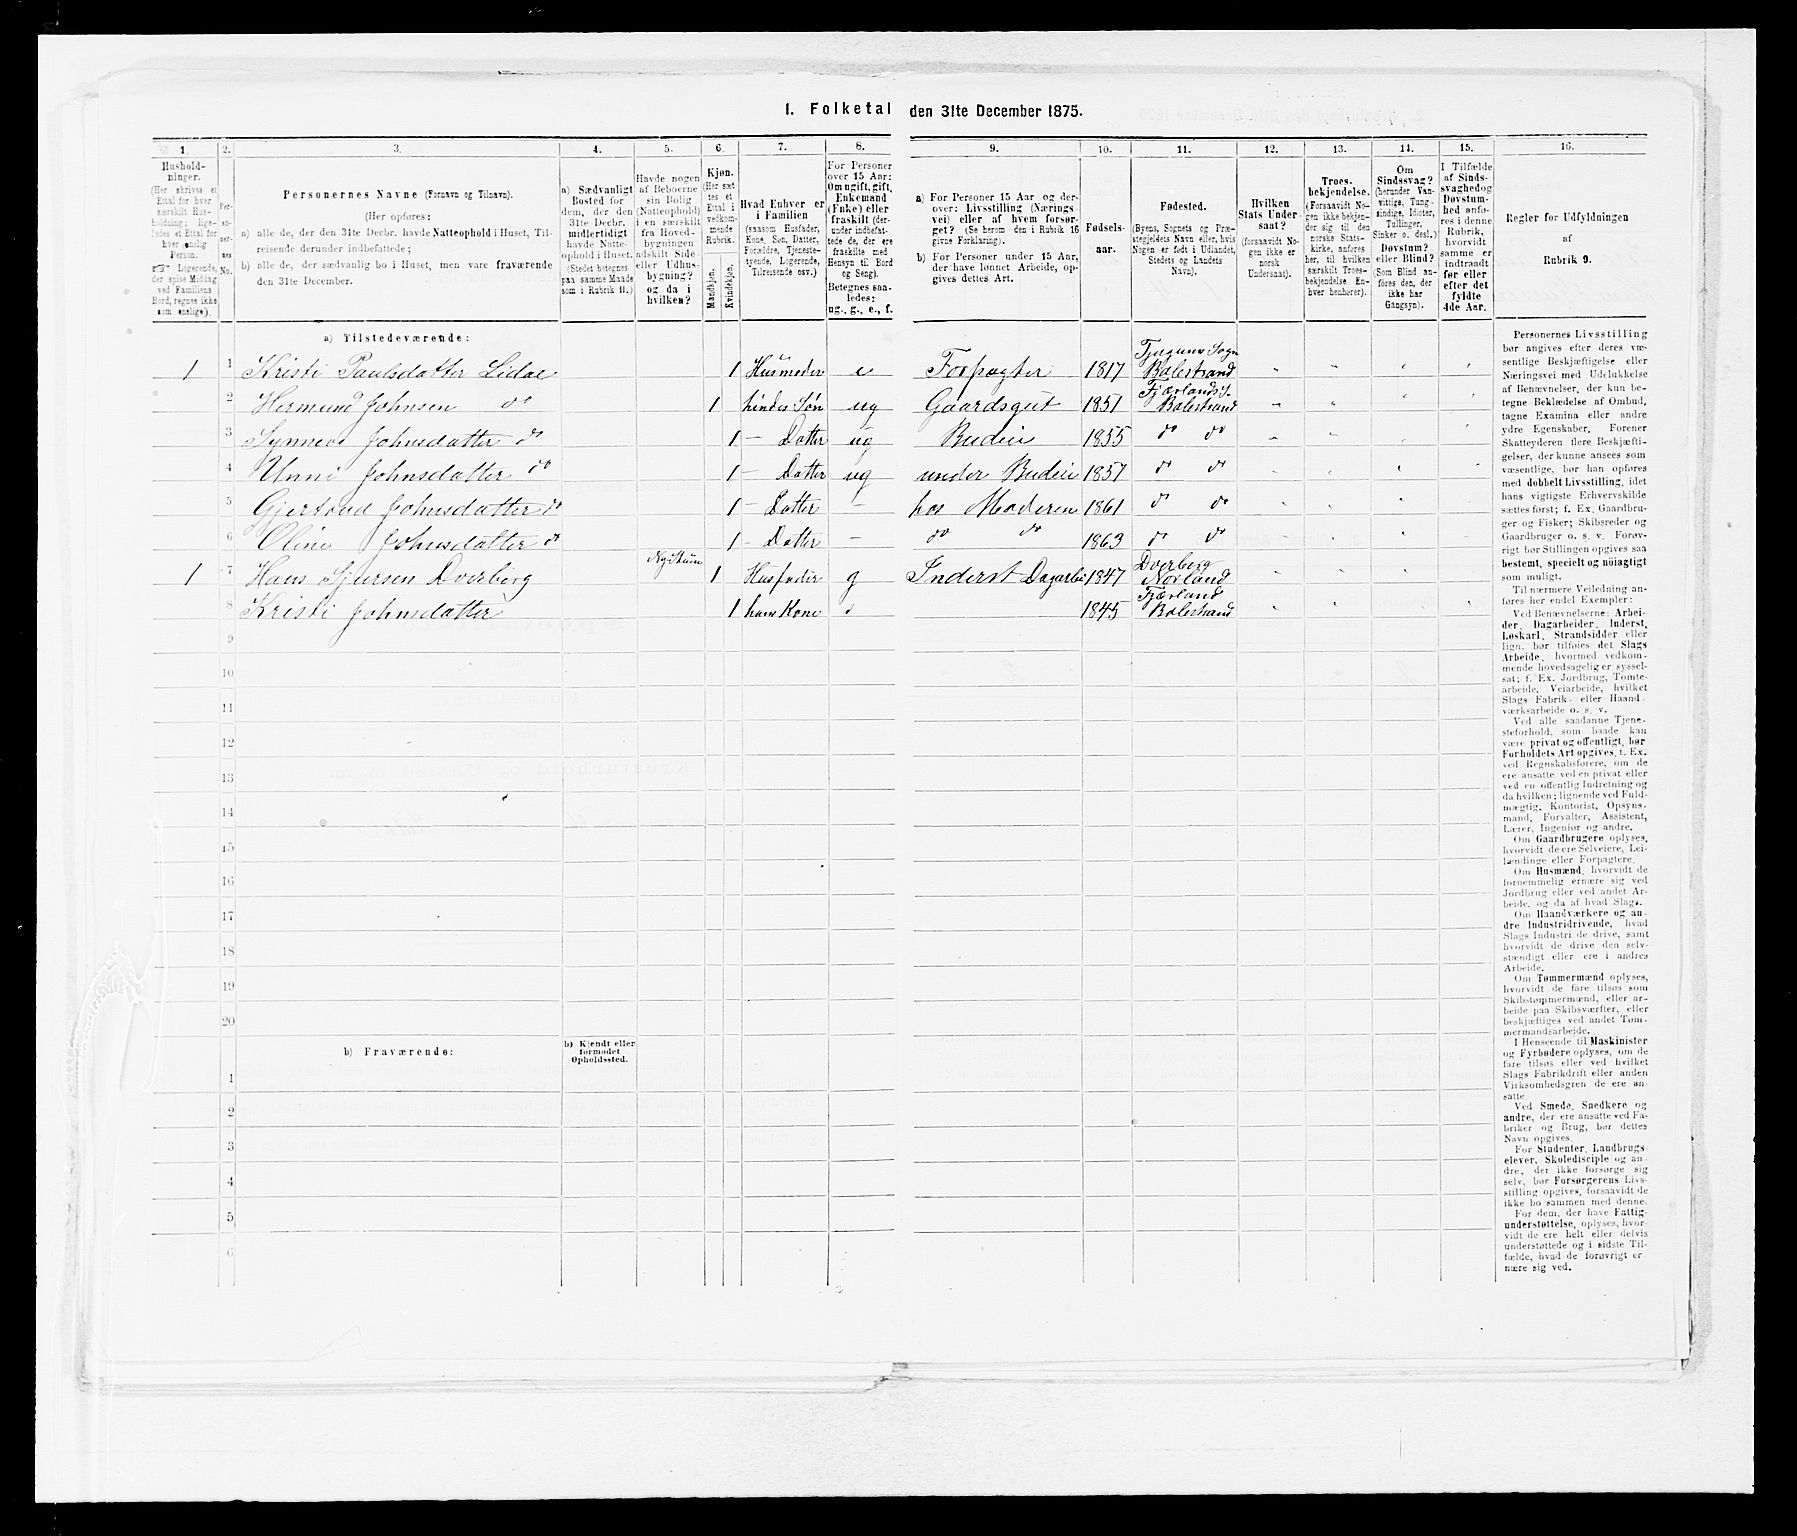 1. Folketal den 31te December 1875.
1.
2.
3.
4.
5.
6.
7.
8.
9.
10.
11.
12.
13.
14.
15.
16.
Hushold-
ninger.
(Her skrives et
Ettal for hver
særskilt Hus-
holdning; lige-
ledes et Ettal for
hver enslig
Person.
☞ Logerende,
der spise Middag
ved Familiens
Bord, regnes ikke
som enslige).
Per-
so-
ner-
nes
No.
Personernes Navne (Fornavn og Tilnavn).
(Her opføres:
a) alle de, der den 31te Decbr. havde Natteophold i Huset, Til-
reisende derunder indbefattede;
b) alle de, der sædvanlig bo i Huset, men vare fraværende
den 31te December.
a) Sædvanligt
Bosted for
dem, der den
31te Decbr.
midlertidigt
havde Natte-
ophold i Huset.
(Stedet betegnes
paa samme Maade
som i Rubrik 11.)
Havde nogen
af Beboerne
sin Bolig
(Natteophold)
i en særskilt
fra Hoved-
bygningen
adskilt Side-
eller Udhus-
bygning?
og da i
hvilken?
Kjøn.
(Her sæt-
tes et
Ettal i
vedkom-
mende
Rubrik.
Mandkjøn.
Kvindekjøn.
Hvad Enhver er
i Familien
(saasom Husfader,
Kone, Søn, Datter,
Forældre, Tjeneste-
tyende, Logerende,
Tilreisende osv.)
For Personer
over 15 Aar:
Om ugift, gift,
Enkemand
(Enke) eller
fraskilt (der-
under indbefat-
tede de, der ere
fraskilte med
Hensyn til Bord
og Seng).
Betegnes saa-
ledes:
ug., g., e., f.
a) For Personer 15 Aar og der-
over: Livsstilling (Nærings-
vei) eller af hvem forsør-
get? (Se herom den i Rubrik 16
givne Forklaring).
b) For Personer under 15 Aar,
der have lønnet Arbeide, op-
gives dettes Art.
Fødsels-
aar.
Fødested.
(Byens, Sognets og Præ-
stegjeldets Navn eller, hvis
Nogen er født i Udlandet,
Stedets og Landets
Navn).
Hvilken
Stats Under-
saat?
(forsaavidt No-
gen ikke er
norsk
Undersaat).
Troes-
bekjendelse.
(Forsaavidt No-
gen ikke bekjen-
der sig til den
norske Stats-
kirke, anføres
her, til hvilken
særskilt Troes-
bekjendelse En-
hver henhører).
Om
Sindssvag?
(herunder Van-
vittige, Tung-
sindige, Idioter,
Tullinger,
Sinker o. desl.)
Døvstum?
eller Blind?
(Som Blind an-
føres den, der
ikke har
Gangsyn).
I Tilfælde
af Sinds-
svaghed og
Døvstum-
hed anfø-
res i denne
Rubrik,
hvorvidt
samme er
indtraadt
før eller
efter det
fyldte
4de Aar.
Regler for Udfyldningen
af
Rubrik 9.
a) Tilstedeværende:
1 1 Kristi Paulsdatter Lidal 1 Husmoder e Forpagter 1817 Sogn Balestrand
2 Hermund Johnsen do 1 hindes Søn ug Gaardsgut 1851 Fjærlands S. Balestrand
3 Synneve Johnsdatter do 1 — Datter ug Budeie 1855 do do
4 Unni Johnsdatter do 1 — Datter ug under Budeie 1857 do do
5 Gjertrud Johnsdatter do 1 — Datter — hos Moderen 1861 do do
6 Oline Johnsdatter do 1 — Datter — do do 1863 do do
1 7 Hans Sjursen Dverberg 1 Husfader g Inderst Dagarbei 1847 Dverberg Norland
8 Kristi Johnsdatter 1 hans Kone 1845 Fjærland Balestrand
9
10
11
12
13
14
15
16
17
18
19
20
b) Fraværende:
b) Kjendt eller
formodet
Opholdssted.
1
2
3
4
5
6
Personernes Livsstilling
bør angives efter deres væ-
sentlige Beskjæftigelse eller
Næringsvei med Udelukkelse
af Benævnelser, der kun be-
tegne Beklædelse af Ombud,
tagne Examina eller andre
ydre Egenskaber. Forener
Skatteyderen flere Beskjæfti-
gelser, der kunne ansees som
væsentlige, bør han opføres
med dobbelt Livsstilling, idet
hans vigtigste Erhvervskilde
sættes først; f. Ex. Gaardbru-
ger og Fisker; Skibsreder og
Gaardbruger o. s. v. Forøv-
rigt bør Stillingen opgives saa
bestemt, specielt og nøiagtigt
som muligt.
Til nærmere Veiledning an-
føres her endel Exempler:
Ved Benævnelserne: Arbei-
der, Dagarbeider, Inderst,
Løskarl, Strandsidder eller
lign. bør tilføies det Slags
Arbeide, hvormed vedkom-
mende hovedsagelig er syssel-
sat; f. Ex. Jordbrug, Tomte-
arbeide, Veiarbeide, hvilket
Slags Fabrik- eller Haand-
værksarbeide o. s. v.
Ved alle saadanne Tjene-
steforhold, som baade kan
være privat og offentligt, bør
Forholdets Art opgives, f. Ex.
ved Regnskabsførere, om de
ere ansatte ved en privat eller
ved en offentlig Indretning og
da hvilken; lignende ved Fuld-
mægtig, Kontorist, Opsyns-
mand, Forvalter, Assistent,
Lærer, Ingeniør og andre.
Om Gaardbrugere oplyses,
hvorvidt de ere Selveiere, Lei-
lændinge eller Forpagtere.
Om Husmænd, hvorvidt de
fornemmelig ernære sig ved
Jordbrug eller ved andet Ar-
beide, og da af hvad Slags.
Om Haandværkere og an-
dre Industridrivende, hvad
Slags Industri de drive, samt
hvorvidt de drive den selv-
stændigt eller ere i andres
Arbeide.
Om Tømmermænd oplyses,
hvorvidt de fare tilsøs som
Skibstømmermænd, eller ar-
beide paa Skibsværfter, eller
beskjæftiges ved andet Tøm-
mermandsarbeide.
I Henseende til Maskinister
og Fyrbødere oplyses, om de
fare tilsøs eller ved hvilket
Slags Fabrikdrift eller anden
Virksomhedsgren de ere an-
satte.
Ved Smede, Snedkere og
andre, der ere ansatte ved Fa-
briker og Brug, bør dettes
Navn opgives.
For Studenter, Landbrugs-
elever, Skoledisciple og an-
dre, der ikke forsørge sig
selv, bør Forsørgerens Livs-
stilling opgives, forsaavidt de
ikke bo sammen med denne.
For dem, der have Fattig-
understøttelse, oplyses, hvor-
vidt de ere helt eller delvis
understøttede og i sidste Til-
fælde, hvad de forøvrigt er-
nære sig ved.